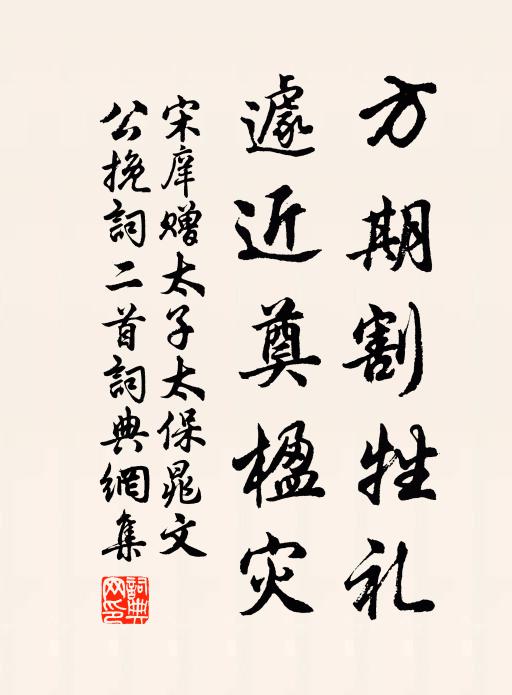 方期割牲礼
遽近奠楹灾
宋庠赠太子太保晁文
公挽詞二首詞典網集
詞典
网印